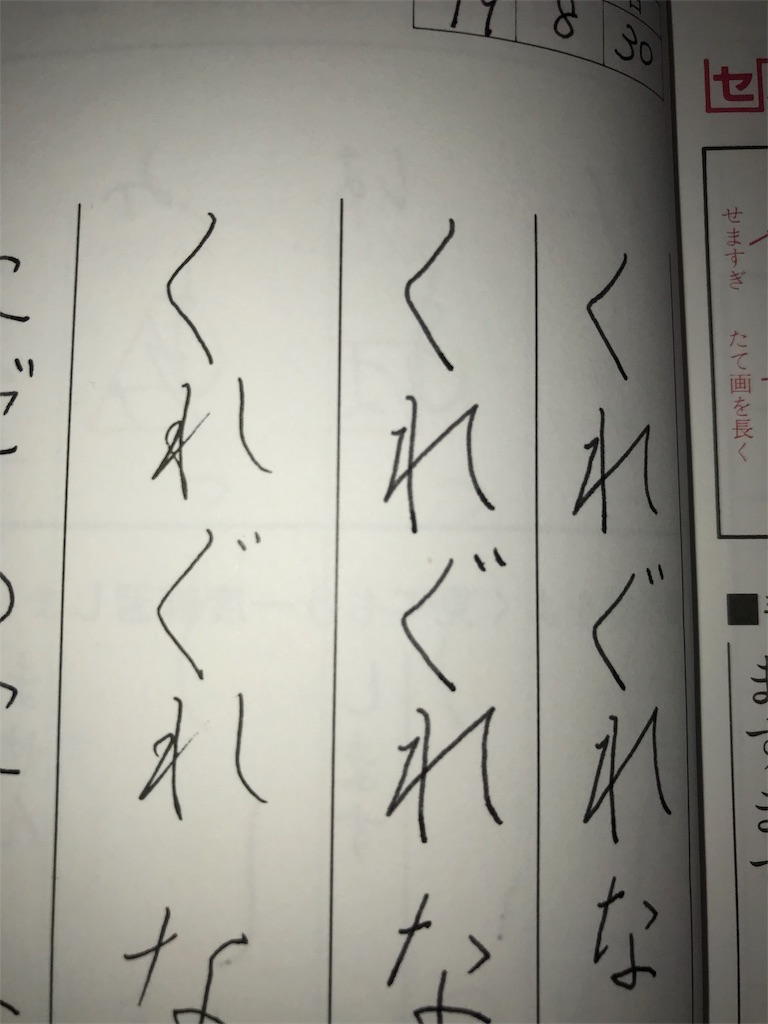 セ
せますぎ たて画を長く
30
8
19
くれぐれな
くれぐれな
くれぐれな